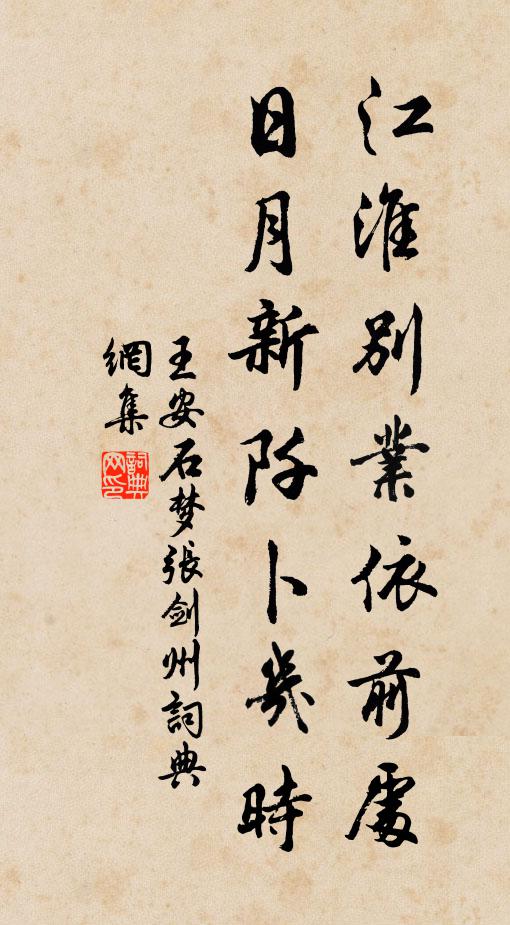 江淮别業依前處
日月新阡卜幾時
王安石梦張剑州詞典
網集
詞典網印